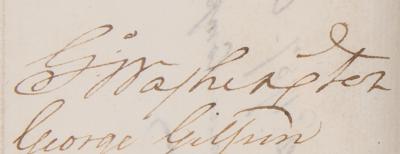 G:Washington
George Gilpin